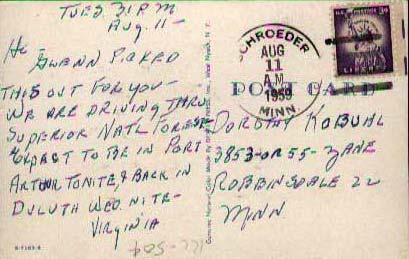 TUES. 31PM
Aug. 11 -
Hi
GWENN PICKED
THIS OUT FOR YOU -
WE ARE DRIVING THRU
SUPERIOR NAT'L FOREST
EXPECT TO BE IN PORT
ARTHUR TONITE, & BACK IN
DULUTH WED. NITE -
VIRGINIA
SCHROEDER
AUG
11
A.M.
1959
MINN.
U.S. POSTAGE
3¢
LIBERTY
POST CARD
DOROTHY KOBUHL
3853-OR 55- ZANE
ROBBINSDALE 22
MINN